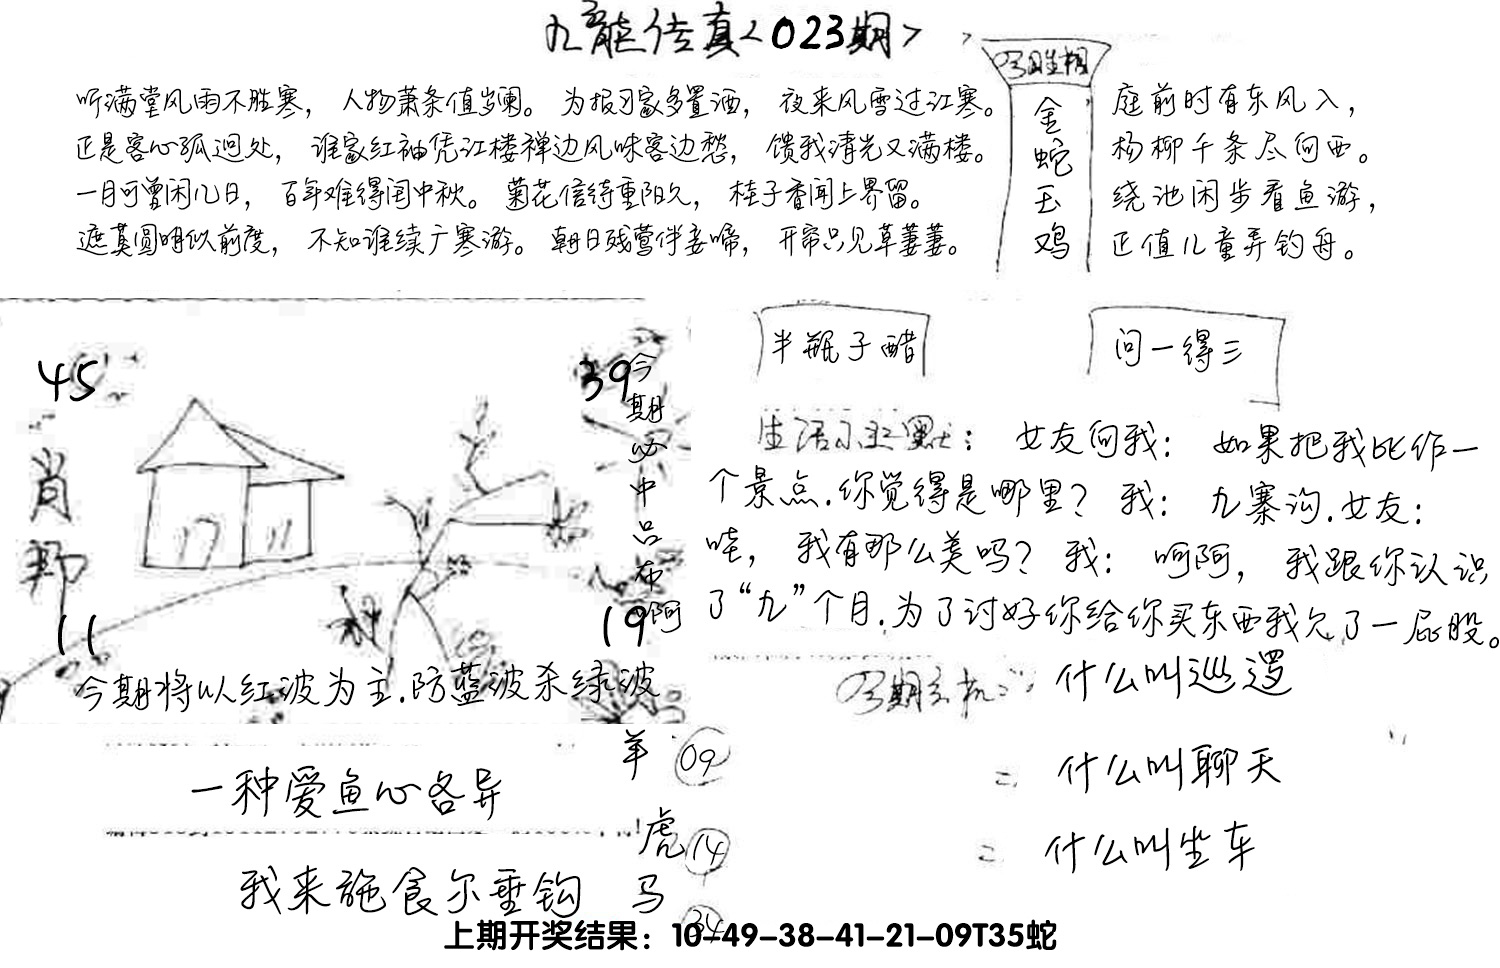 九龙传真<023期>
听满堂风雨不胜寒，人物萧条值岁阑。为报习家多置酒，夜来风雪过江寒。
正是客心孤迥处，谁家红袖凭江楼禅边风味客边愁，馈我清光又满楼。
一月可曾闲几日，百年难得闰中秋。菊花信待重阳久，桂子香闻上界留。
遮莫圆明似前度，不知谁续广寒游。朝日残莺伴妾啼，开帘只见草萋萋。
今日生相
金
蛇
玉
鸡
庭前时有东风入，
杨柳千条尽向西。
绕池闲步看鱼游，
正值儿童弄钓舟。
半瓶子醋
问一得三
45
39
肖
11
19
今
期
必
中
品
布
阿
今期将以红波为主.防蓝波杀绿波
生活小幽默：女友问我：如果把我比作一
个景点.你觉得是哪里？我：九寨沟.女友：
哇，我有那么美吗？我：呵呵，我跟你认识
了“九”个月.为了讨好你给你买东西我欠了一屁股。
今期玄机：什么叫巡逻
二、什么叫聊天
二、什么叫坐车
一种爱鱼心各异
我来施食尔垂钩
羊 09
虎 14
马 34
上期开奖结果：10-49-38-41-21-09T35蛇